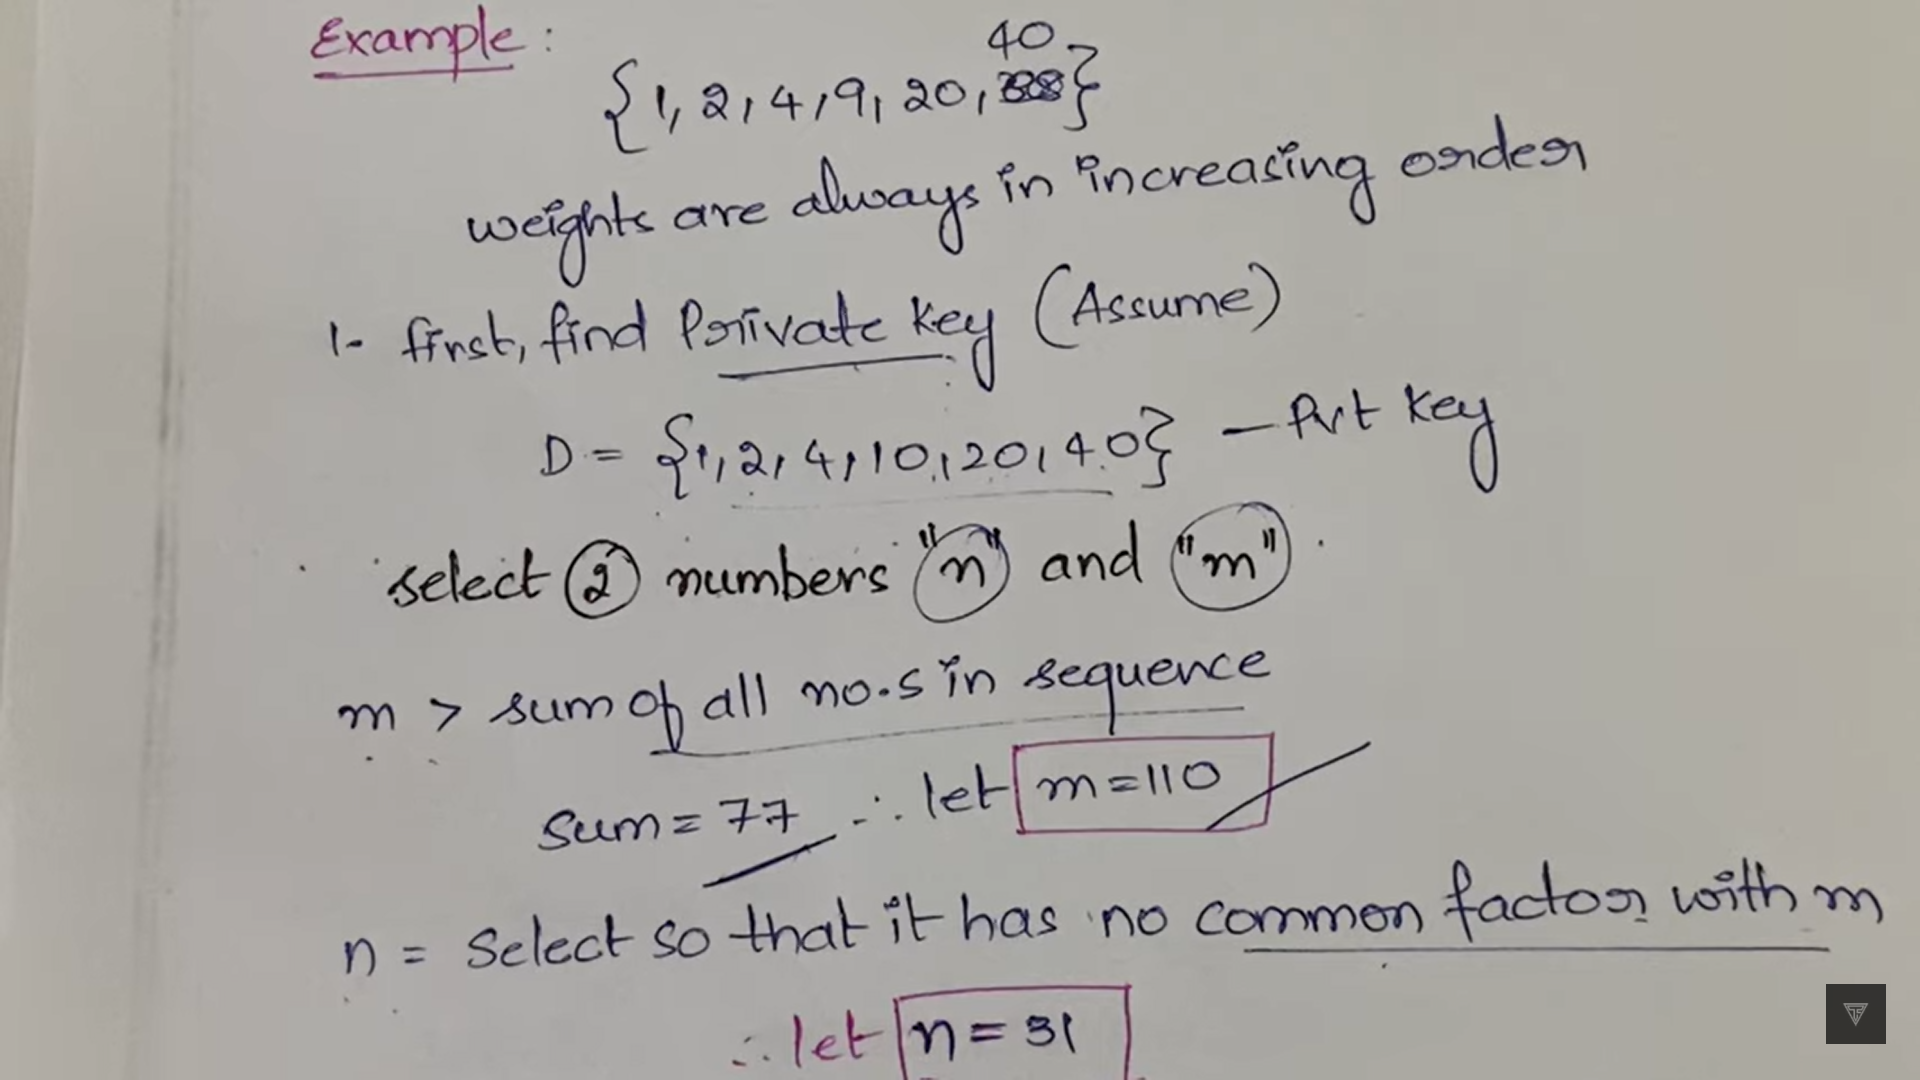 Example :
40
{1, 2, 4, 9, 20, }
weights are always in increasing order
1- first, find Private key (Assume)
D = {1, 2, 4, 10, 20, 40} - Pvt key
select 2 numbers "n" and "m" .
m > sum of all no.s in sequence
sum = 77 ∴ let m = 110
n = select so that it has no common factor with m
∴ let n = 31